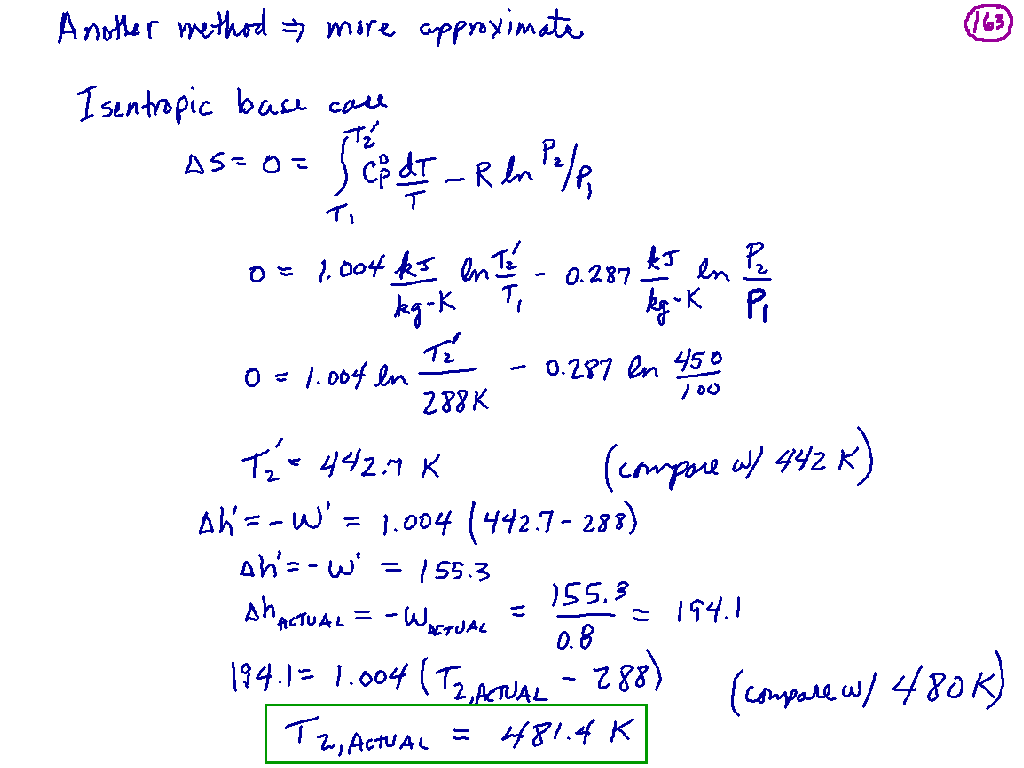 Another method ⇒ more approximate
163
Isentropic base case
ΔS = 0 = ∫_{T₁}^{T₂'} Cp° dT/T - R ln P₂/P₁
0 = 1.004 kJ/kg-K ln T₂'/T₁ - 0.287 kJ/kg-K ln P₂/P₁
0 = 1.004 ln T₂'/288K - 0.287 ln 450/100
T₂' = 442.7 K (compare w/ 442 K)
Δh' = -W' = 1.004 (442.7 - 288)
Δh' = -W' = 155.3
Δh_ACTUAL = -W_ACTUAL = 155.3/0.8 = 194.1
194.1 = 1.004 (T₂,ACTUAL - 288) (compare w/ 480K)
T₂,ACTUAL = 481.4 K